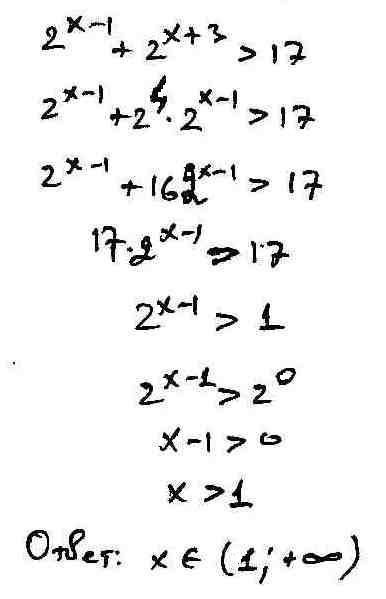 2^{x-1} + 2^{x+3} > 17
2^{x-1} + 2^4 · 2^{x-1} > 17
2^{x-1} + 16 2^{x-1} > 17
17 · 2^{x-1} > 17
2^{x-1} > 1
2^{x-1} > 2^0
x-1 > 0
x > 1
Ответ: x ∈ (1; +∞)